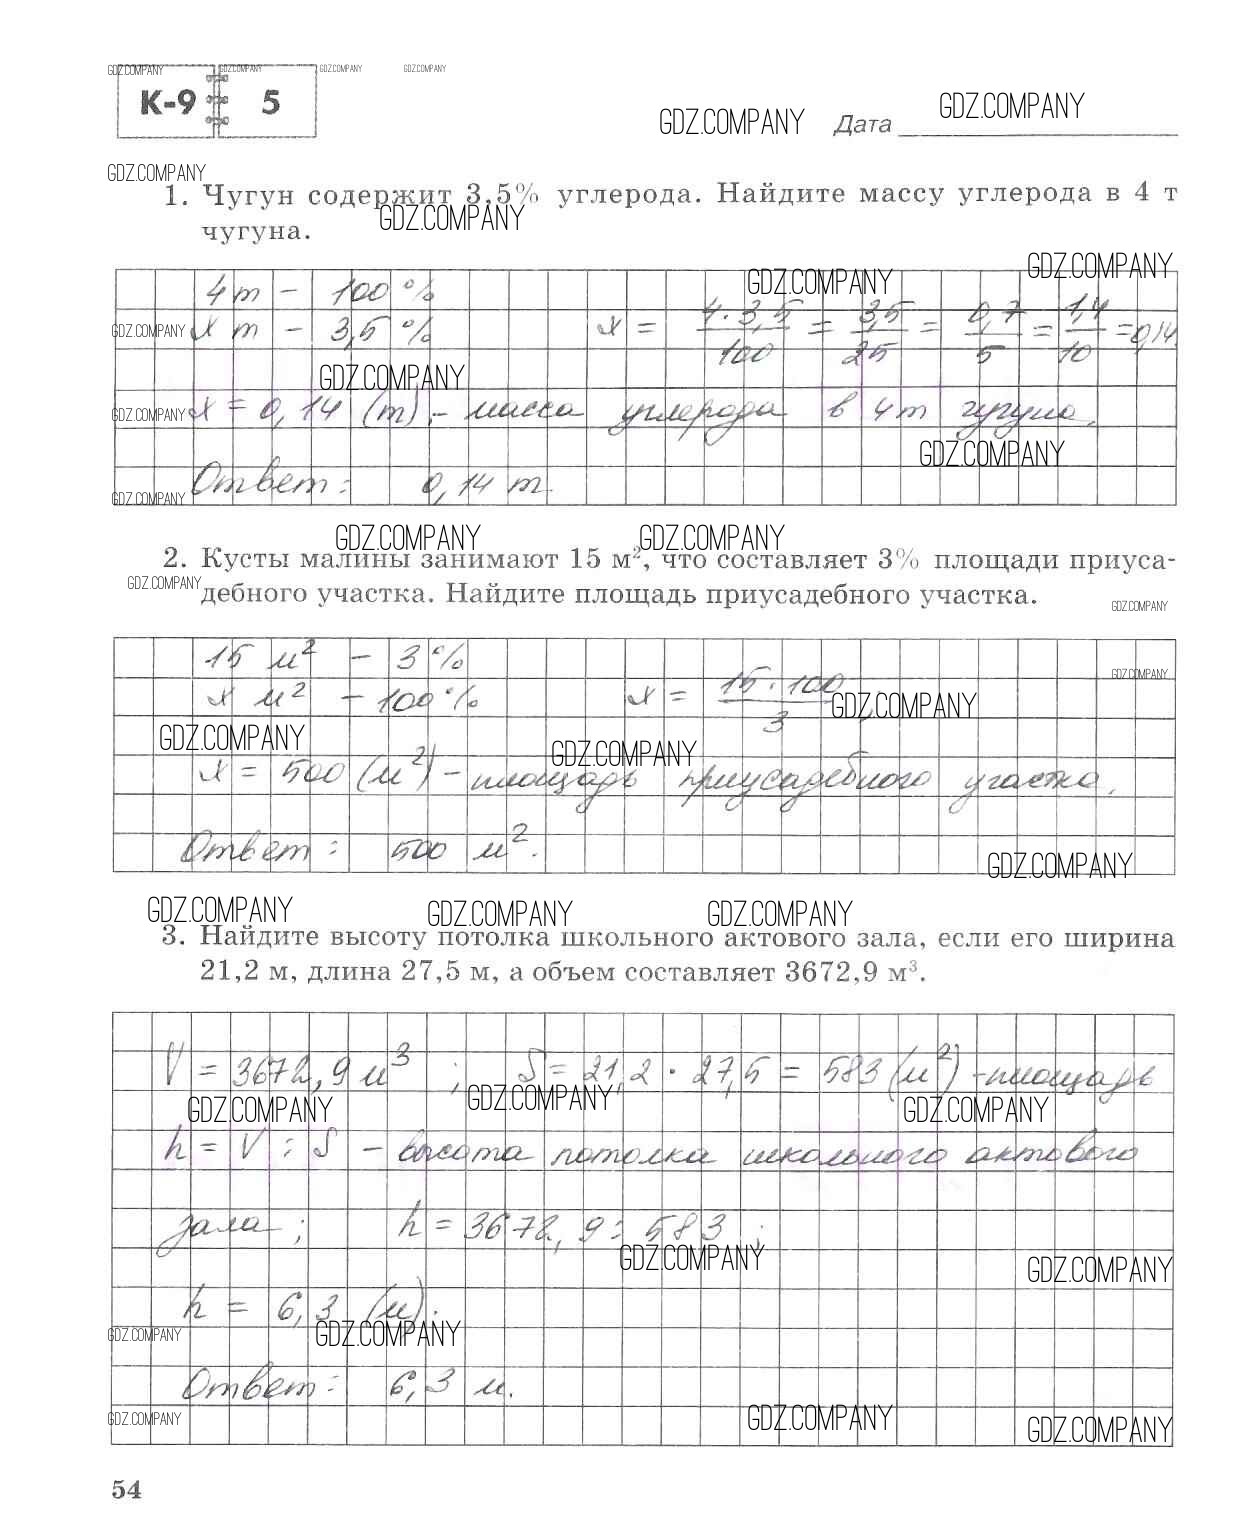 GDZ.COMPANY GDZ.COMPANY GDZ.COMPANY GDZ.COMPANY
К-9 5
GDZ.COMPANY Дата GDZ.COMPANY
GDZ.COMPANY
1. Чугун содержит 3,5% углерода. Найдите массу углерода в 4 т
GDZ.COMPANY
чугуна.
GDZ.COMPANY GDZ.COMPANY
4 т – 100 %
GDZ.COMPANY
x т – 3,5 % x = 4·3,5/100 = 3,5/25 = 0,7/5 = 1,4/10 = 0,14
GDZ.COMPANY
GDZ.COMPANY
x = 0,14 (т) – масса углерода в 4т чугуна.
GDZ.COMPANY
Ответ: 0,14 т.
GDZ.COMPANY
GDZ.COMPANY GDZ.COMPANY
2. Кусты малины занимают 15 м², что составляет 3% площади приуса-
GDZ.COMPANY
дебного участка. Найдите площадь приусадебного участка.
GDZ.COMPANY
15 м² – 3 %
GDZ.COMPANY
x м² – 100 % x = 15·100/3
GDZ.COMPANY
GDZ.COMPANY GDZ.COMPANY
x = 500 (м²) – площадь приусадебного участка.
Ответ: 500 м².
GDZ.COMPANY
GDZ.COMPANY GDZ.COMPANY GDZ.COMPANY
3. Найдите высоту потолка школьного актового зала, если его ширина
21,2 м, длина 27,5 м, а объем составляет 3672,9 м³.
V = 3672,9 м³ ; S = 21,2 · 27,5 = 583 (м²) – площадь
GDZ.COMPANY GDZ.COMPANY GDZ.COMPANY
h = V : S – высота потолка школьного актового
зала ; h = 3672,9 : 583 ;
GDZ.COMPANY GDZ.COMPANY
h = 6,3 (м).
GDZ.COMPANY GDZ.COMPANY
Ответ: 6,3 м.
GDZ.COMPANY GDZ.COMPANY GDZ.COMPANY
54